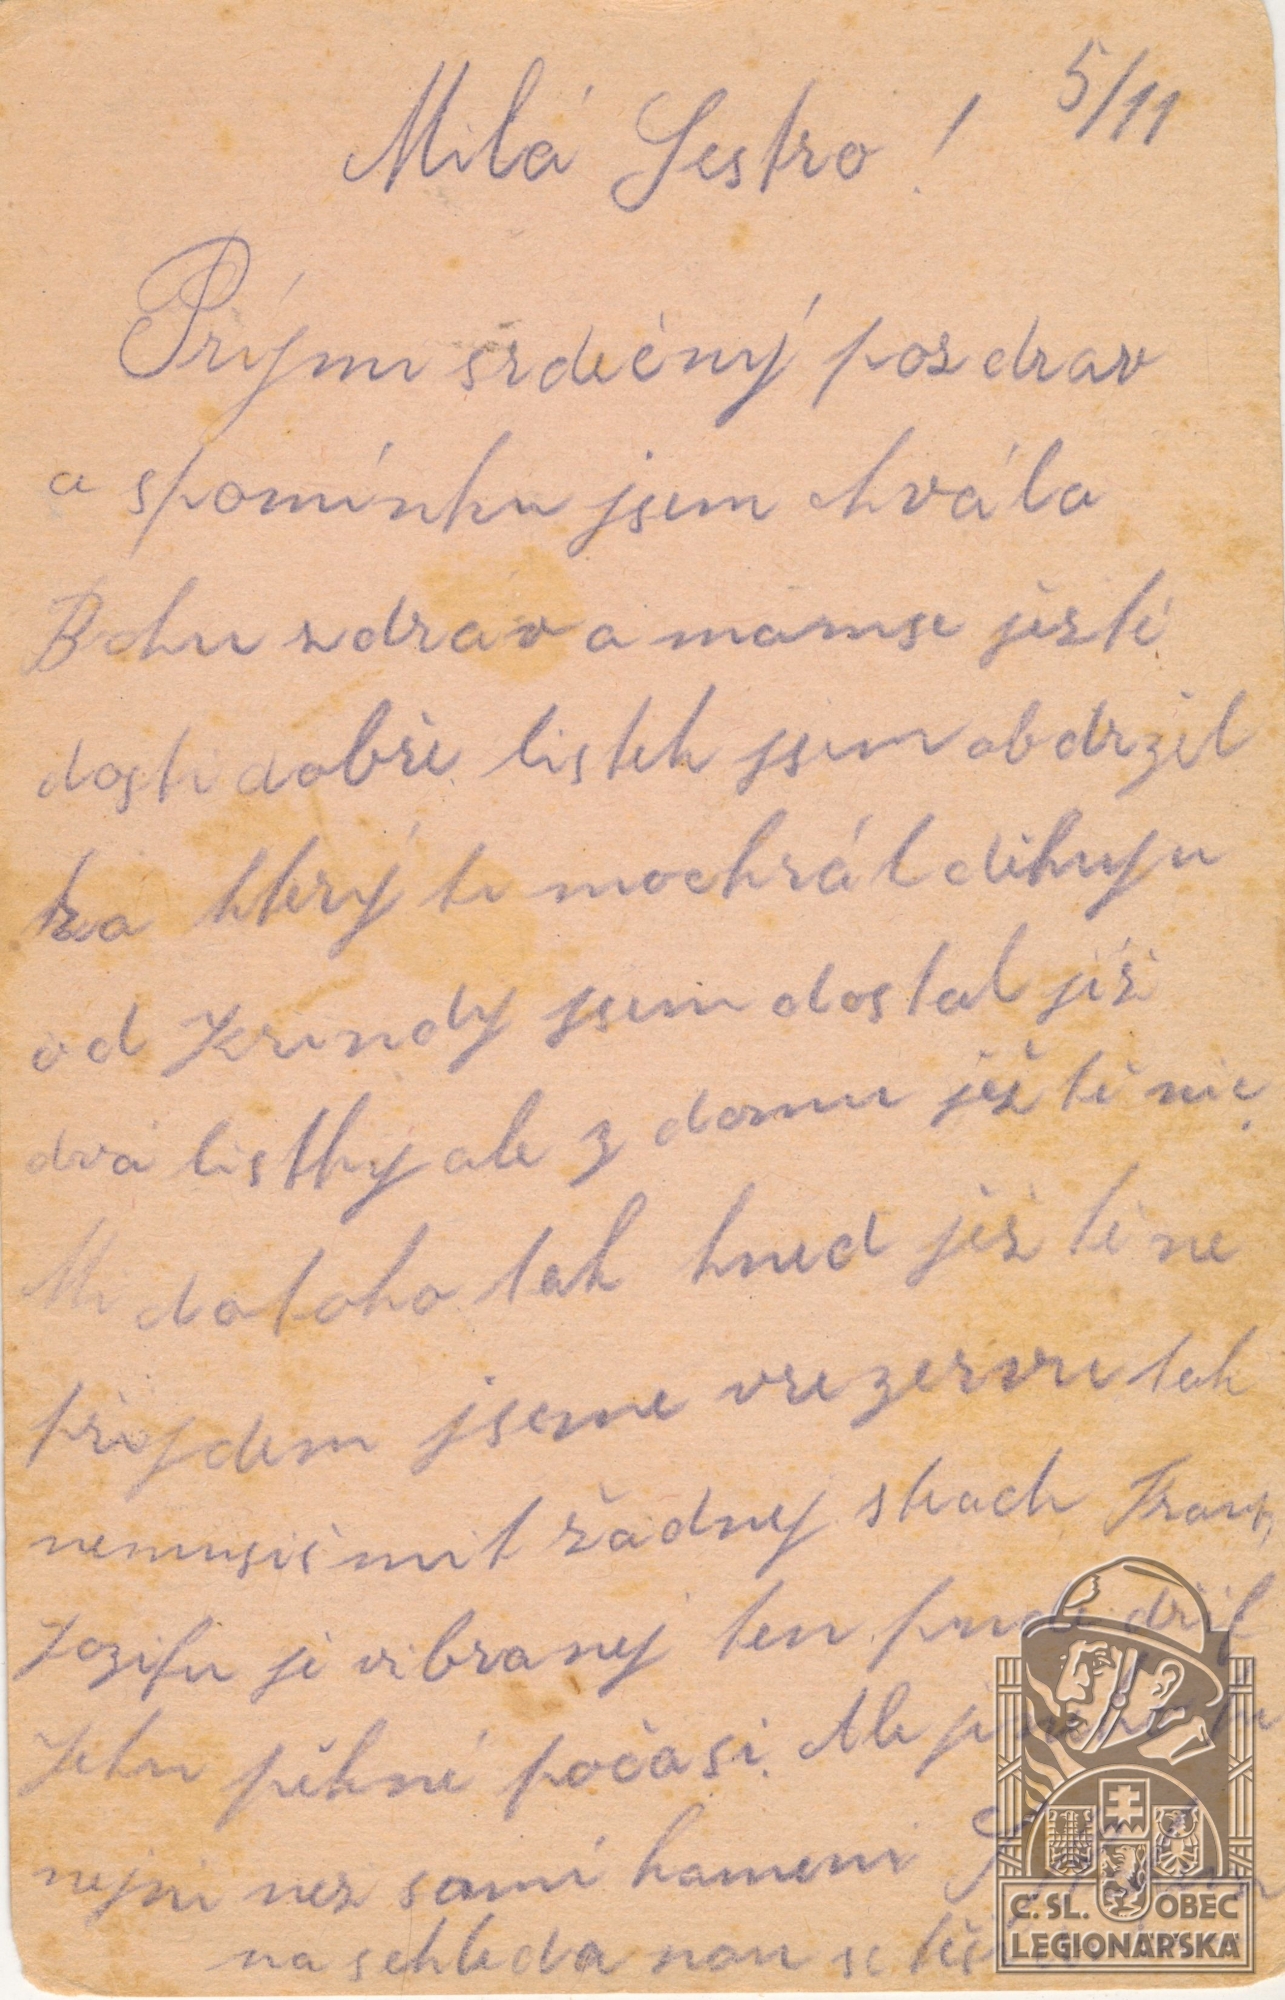 5/11
Milá Sestro!
Prýmu srdečný pozdrav
a spomínku jsem chvála
Bohu zdráv a mámse ješté
dosti dobře. listek jsem obdrzel
za který ti mockrát děkuju
od Krindy jsem dostal již
dvá listky ale z domu ješte nic.
Mi dotoho tak hned ješ těne
přijdem jsme vrezervě tak
nemusiš mit žádnej strach
Jozifu je vibranej ten
pěkné počasi. Ale
nejni nez samí kameni
na schleda nou se těší
Č. SL. OBEC
LEGIONÁŘSKÁ